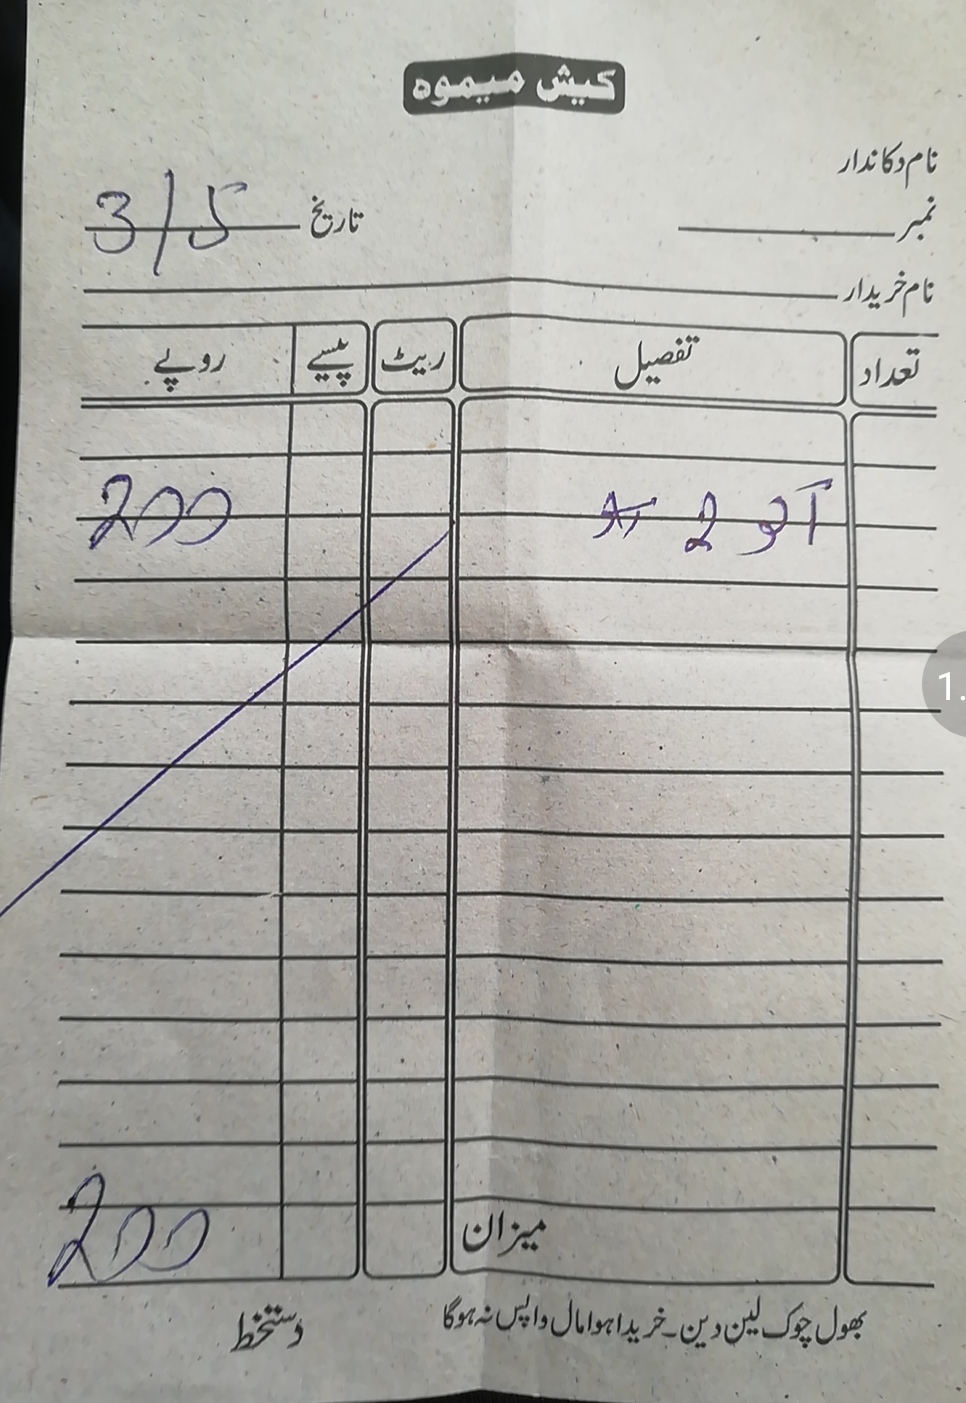 کیش میموہ
نام دکاندار
نمبر تاریخ 3/5
نام خریدار
تعداد تفصیل ریٹ پیسے روپے
2 200
میزان 200
بھول چوک لین دین۔خریدا ہوا مال واپس نہ ہوگا دستخط
1.